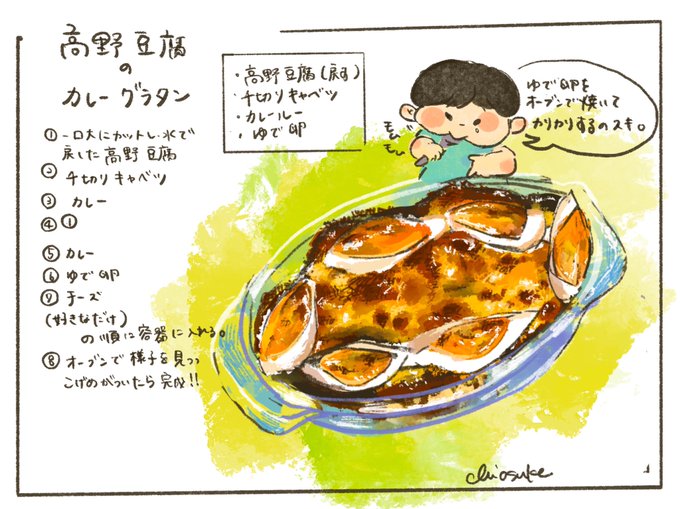 高野豆腐
の
カレーグラタン
・高野豆腐(戻す)
・千切りキャベツ
・カレールー
・ゆで卵
ゆで卵を
オーブンで焼いて
カリカリするのスキ。
もぐ
もぐ
① 一口大にカットし水で
戻した高野豆腐
② 千切りキャベツ
③ カレー
④ ①
⑤ カレー
⑥ ゆで卵
⑦ チーズ
(好きなだけ)
の順に容器に入れる。
⑧ オーブンで様子を見つつ
こげめがついたら完成!!
chiosuke